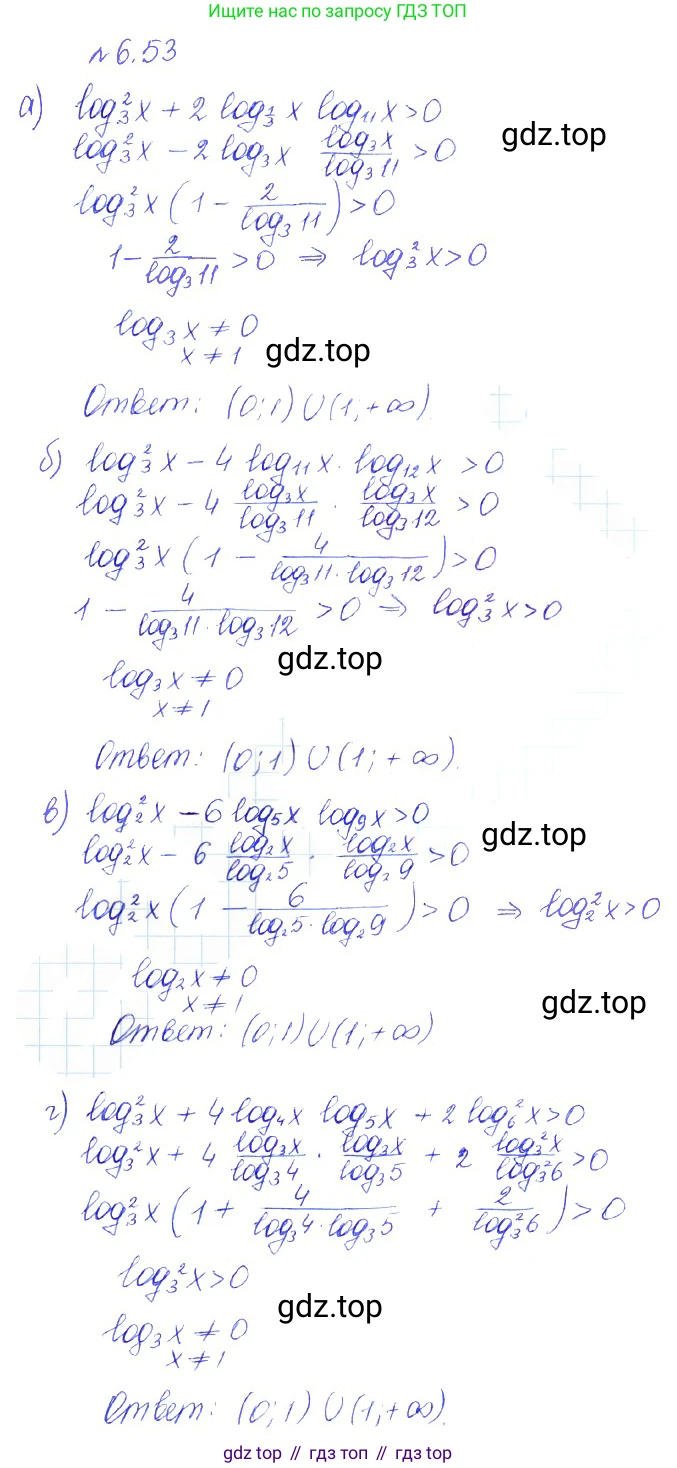 Ищите нас по запросу ГДЗ ТОП
№6.53
а) log₃²x + 2 log_{1/3} x log₁₁x > 0
gdz.top
log₃²x − 2 log₃x log₃x/log₃11 > 0
log₃²x (1 − 2/log₃11) > 0
1 − 2/log₃11 > 0 ⇒ log₃²x > 0
log₃x ≠ 0
x ≠ 1
gdz.top
Ответ: (0;1)∪(1;+∞)
б) log₃²x − 4 log₁₁x · log₁₂x > 0
log₃²x − 4 log₃x/log₃11 · log₃x/log₃12 > 0
log₃²x (1 − 4/(log₃11·log₃12)) > 0
1 − 4/(log₃11·log₃12) > 0 ⇒ log₃²x > 0
log₃x ≠ 0
gdz.top
x ≠ 1
Ответ: (0;1)∪(1;+∞).
в) log₂²x − 6 log₅x log₉x > 0
gdz.top
log₂²x − 6 log₂x/log₂5 · log₂x/log₂9 > 0
log₂²x (1 − 6/(log₂5·log₂9)) > 0 ⇒ log₂²x > 0
log₂x ≠ 0
x ≠ 1
gdz.top
Ответ: (0;1)∪(1;+∞)
г) log₃²x + 4 log₄x log₅x + 2 log₆²x > 0
log₃²x + 4 log₃x/log₃4 · log₃x/log₃5 + 2 log₃²x/log₃²6 > 0
log₃²x (1 + 4/(log₃4·log₃5) + 2/log₃²6) > 0
log₃²x > 0
gdz.top
log₃x ≠ 0
x ≠ 1
Ответ: (0;1)∪(1;+∞).
gdz top // гдз топ // gdz top